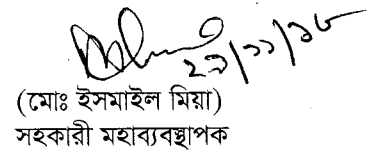 ২৯/১১/১৮
(মোঃ ইসমাইল মিয়া)
সহকারী মহাব্যবস্থাপক